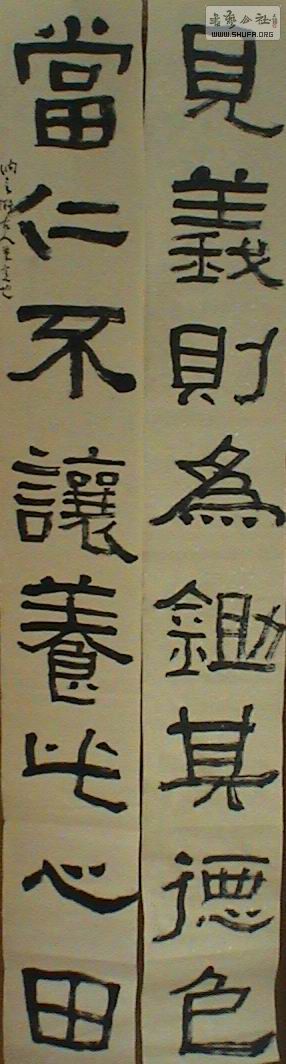 見義則為鋤其德色
當仁不讓養此心田
書藝公社
WWW.SHUFA.ORG